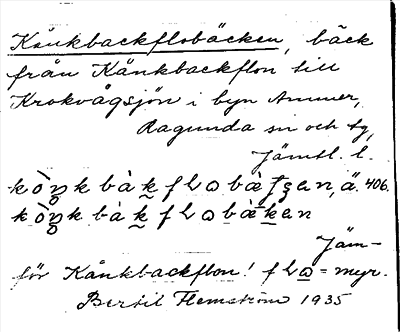 Kånkbackflobäcken, bäck
från Kånkbackflon till
Krokvågsjön i byn Ammer,
Ragunda sn och tg,
Jämtl. l.
kò̀ŋk bàk flo bæ̀ʃʒen, ä. 406.
kò̀ŋk bàk flo bæ̀ken
Jäm-
för Kånkbackflon! flo = myr.
Bertil Flemström 1935